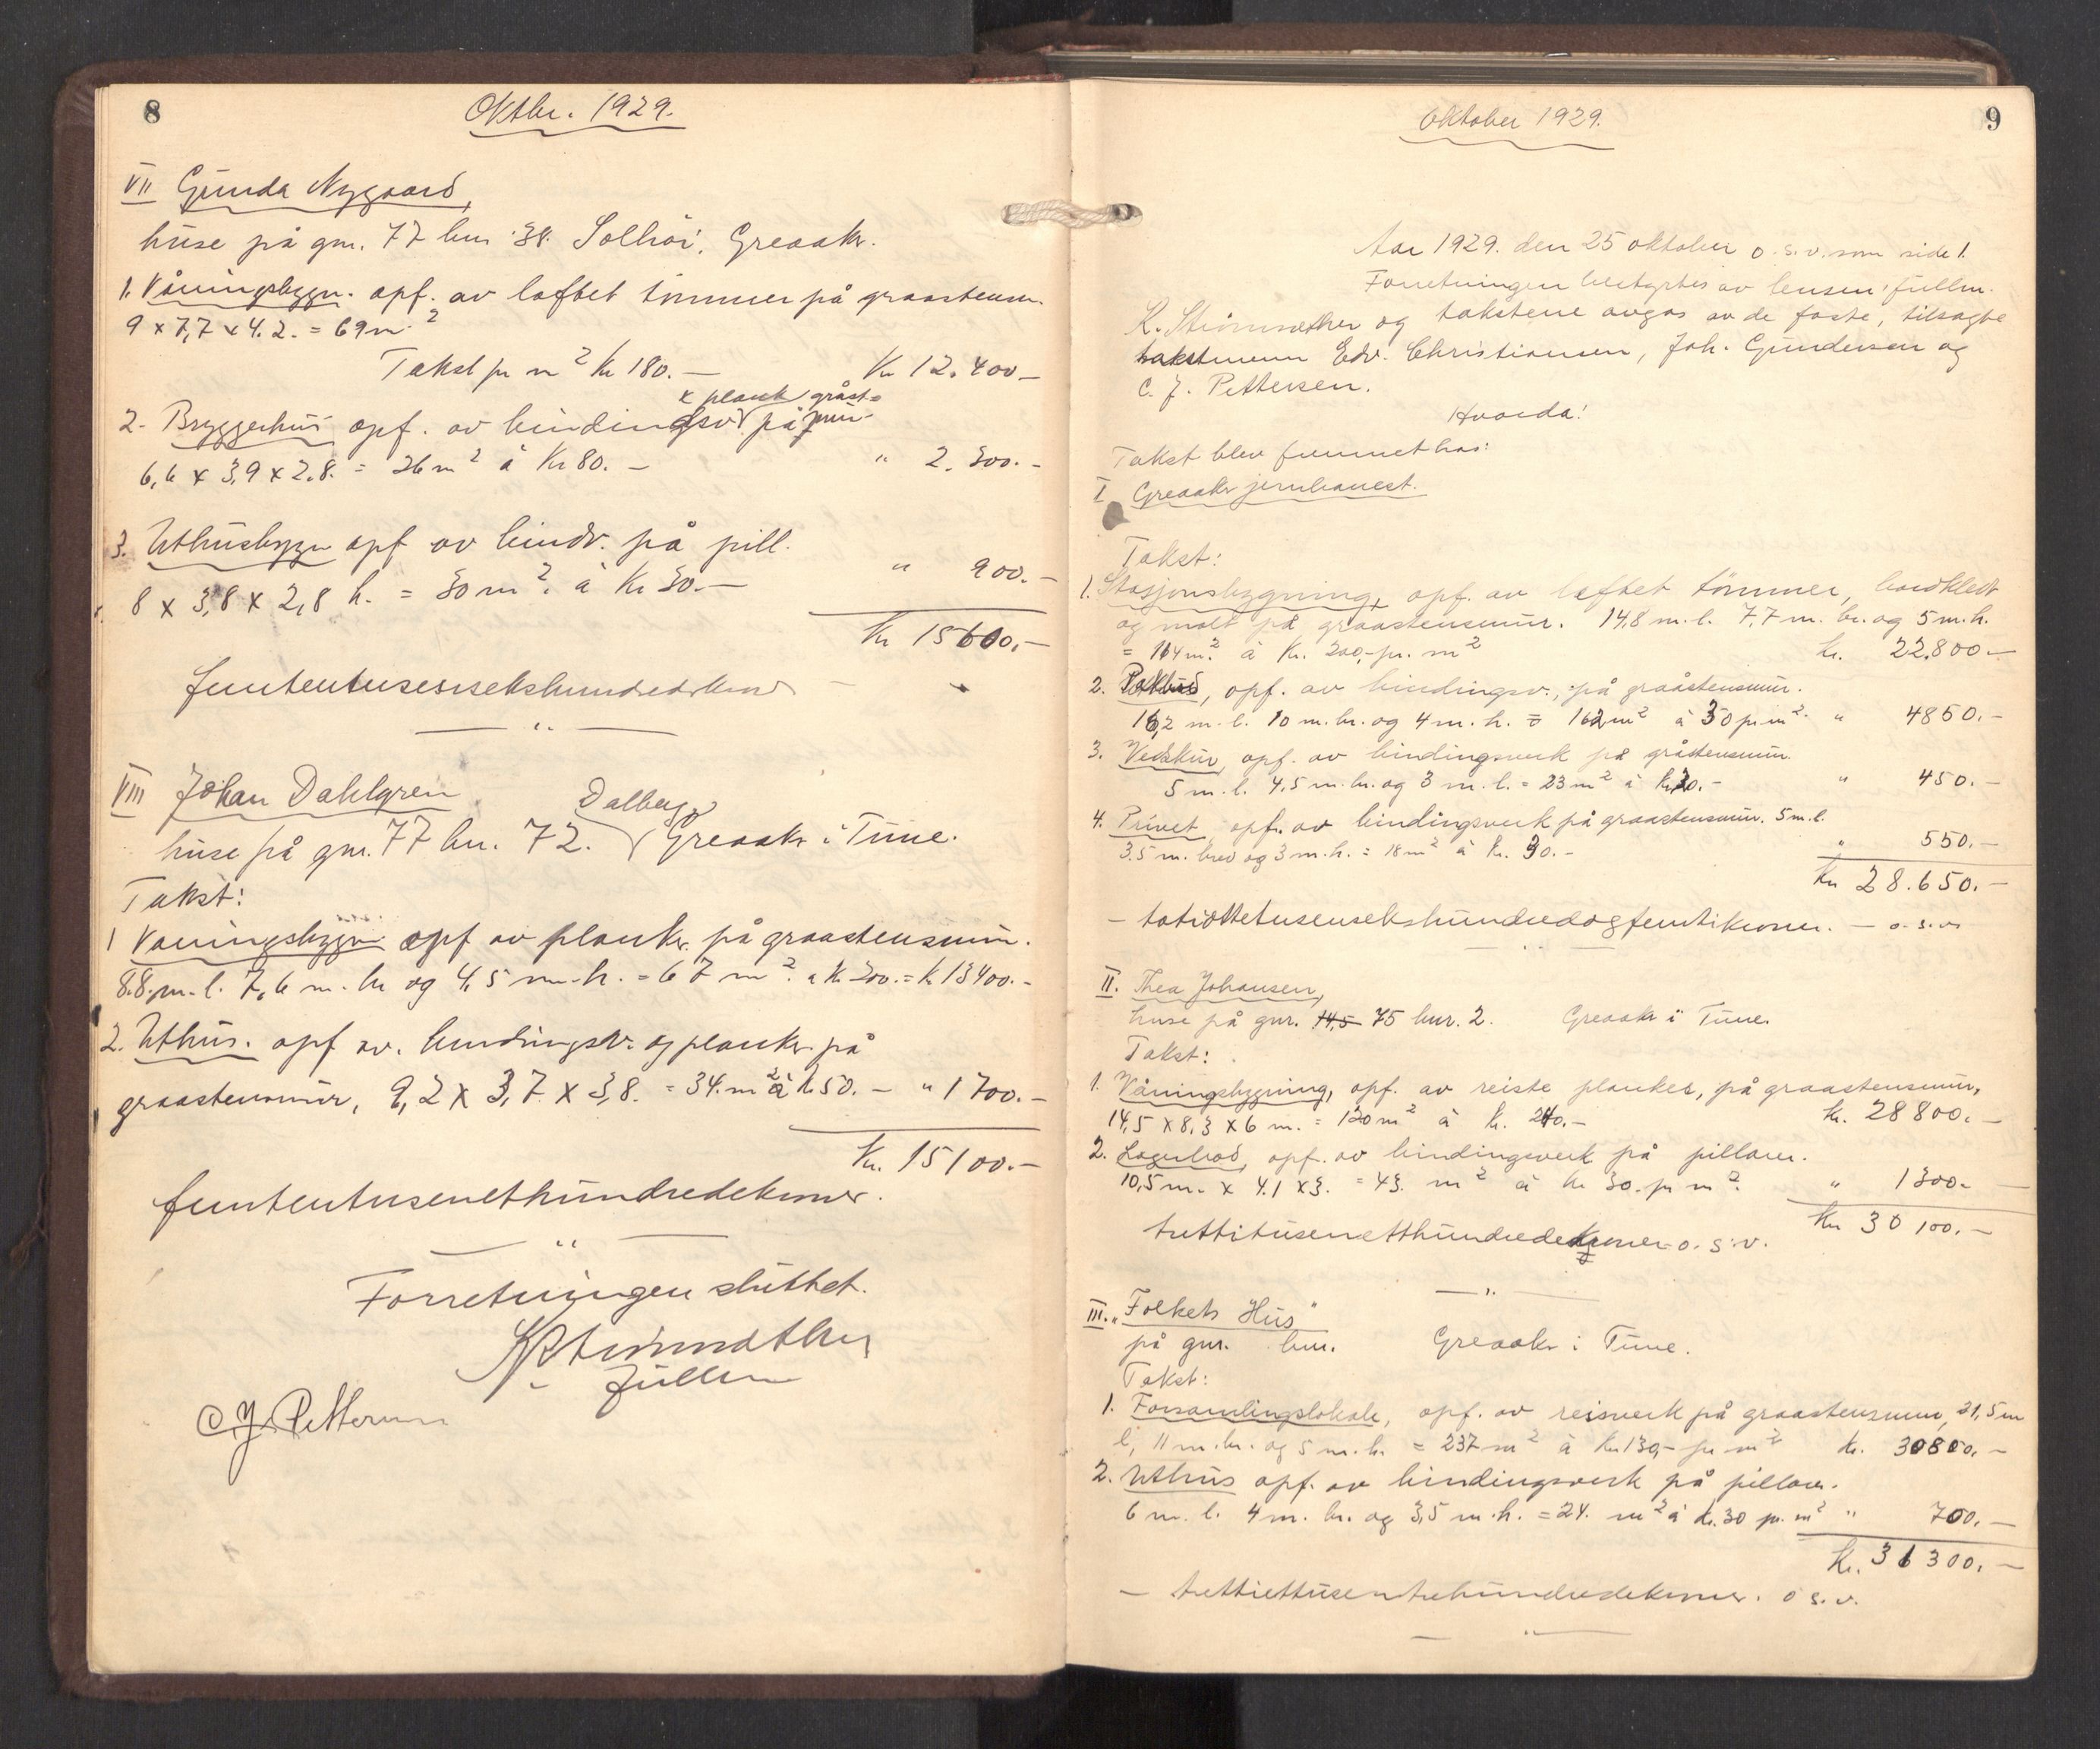 8
Oktbr. 1929.
VII Gunda Nygaard,
huse på gnr. 77 bnr 38. Solhöi, Greaaker.
1. Våningsbygn. opf. av laftet tömmer på graastensm.
9 x 7,7 x 4.2. = 69 m.2
Takst pr m2 kr 180.— Kr 12.400—
x plank gråst=
2- Bryggerhus opf. av bindingsv på mur-
6,6 x 3,9 x 2,8. = 26 m2 á Kr 80.— " 2.300.-
3. Uthusbygn opf av bindv. på pill.
8 x 3,8 x 2,8 h. = 30 m2. á Kr 30.— " 900.-
Kr 15600.—
femtentusensekshundredekroner —
— " —
VIII Johan Dahlgren
Dalberg
huse på gnr. 77 bnr. 72. Greaaker i Tune.
Takst:
1 Vaningsbygn opf av planker på graastensmur.
8.8. m. l. 7,6 m. br og 4,5 m. h. = 67 m2. a kr 200. = kr 13400.-
2. Uthus. opf av. bindingsv. og planker på
graastensmur, 9,2 x 3,7 x 3,8. = 34. m2 á kr 50.— " 1700.-
Kr. 15100.—
femtentusenethundredekroner.
— " —
Forretningen sluttet.
fullm
C J. Pettersen
Oktober 1929.
9
Aar 1929. den 25 oktober o. s. v. som side 1.
Forretningen bestyrtes av lensm. fullm.
K. Strömsæther og takstene avgas av de faste, tilsagte
takstmenn Edv. Christiansen, Joh. Gundersen og
C. J. Pettersen.
Hvorda!
Takst blev funnet hos:
I Greaaker jernbanest.
Takst:
1. Stasjonsbygning, opf. av laftet tömmer, bordkledt
og malt på graastensmur. 14,8 m. l. 7,7 m. br. og 5 m. h.
= 114 m.2 á Kr. 200,- pr. m2 kr. 22.800—
2. Pakbod, opf. av bindingsv., på graastensmur.
16,2 m. l. 10 m. br. og 4 m. h. = 162 m2 á 30 pr m2. " 4850.—
3. Vedskur, opf. av bindingsverk på gråstensmur.
5 m. l. 4,5 m. br. og 3 m. l. = 23 m2 á kr 20.- " 450.—
4. Privet opf. av bindingsverk på graastensmur. 5 m. l.
3.5 m. bred og 3 m. h. = 18 m2 á kr. 30.- " 550.—
Kr 28.650.—
— totiottetusensekshundredogfemtikroner. — o. s. v.
— " —
II. Thea Johansen,
huse på gnr. 14,5 75 bnr. 2. Greaaker i Tune.
Takst:
1. Våningsbygning, opf. av reiste planker, på graastensmur,
14,5 x 8,3 x 6 m. = 120 m2 á kr. 240.- kr. 28800.—
2. Lagerbod, opf. av bindingsverk på pillarer.
10,5 m. x 4.1 x 3. = 43. m2 á kr 30. pr m2. " 1300.-
Kr 30 100.—
trettitusenetthundredekroner- o. s. v.
— " —
III. "Folkets Hus"
på gnr. bnr. Greaaker i Tune.
Takst:
1. Forsamlingslokale, opf. av reisverk på graastensmur, 21,5 m
l, 11 m. br. og 5 m. h. = 237 m2 á kr 130,- pr m2 kr. 30800.—
2. Uthus opf. av bindingsverk på pillarer.
6 m. l. 4 m. br. og 3,5 m. h. = 24. m2 á kr. 30 pr. m2 " 700.—
Kr. 31300.—
— trettiettusentrehundredekroner. o s. v.
— " —